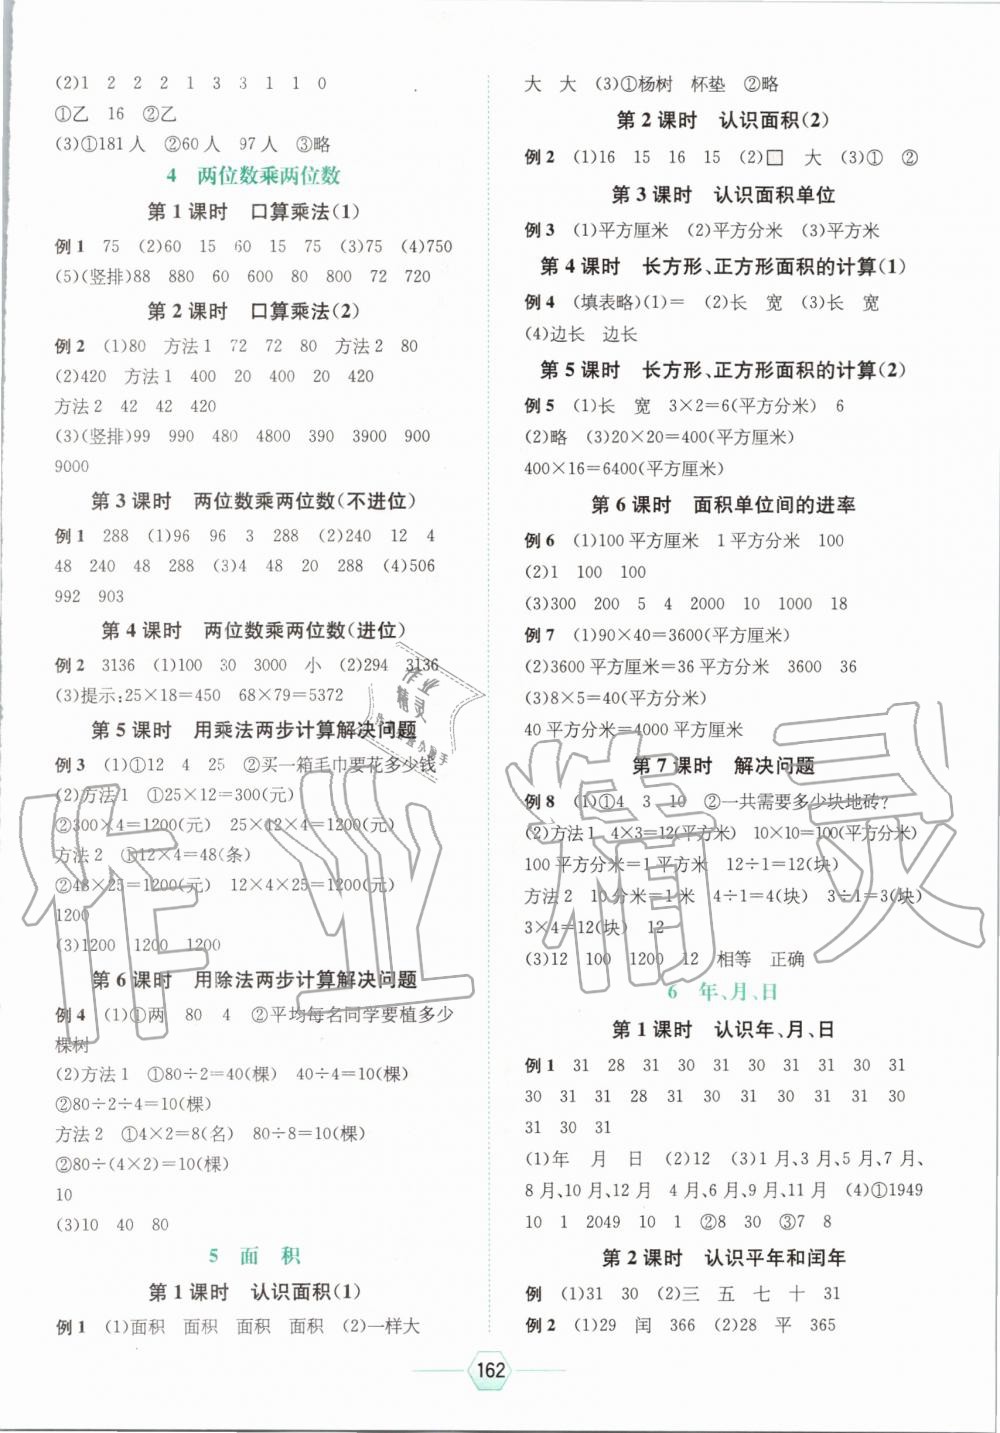 (2)1 2 2 2 1 3 3 1 1 0
①乙 16 ②乙
(3)①181人 ②60人 97人 ③略
4 两位数乘两位数
第1课时 口算乘法(1)
例1 75 (2)60 15 60 15 75 (3)75 (4)750
(5)(竖排)88 880 60 600 80 800 72 720
第2课时 口算乘法(2)
例2 (1)80 方法1 72 72 80 方法2 80
(2)420 方法1 400 20 400 20 420
方法2 42 42 420
(3)(竖排)99 990 480 4800 390 3900 900
9000
第3课时 两位数乘两位数(不进位)
例1 288 (1)96 96 3 288 (2)240 12 4
48 240 48 288 (3)4 48 20 288 (4)506
992 903
第4课时 两位数乘两位数(进位)
例2 3136 (1)100 30 3000 小 (2)294 3136
(3)提示:25×18=450 68×79=5372
第5课时 用乘法两步计算解决问题
例3 (1)①12 4 25 ②买一箱毛巾要花多少钱
(2)方法1 ①25×12=300(元)
②300×4=1200(元) 25×12×4=1200(元)
方法2 ①12×4=48(条)
②48×25=1200(元) 12×4×25=1200(元)
1200
(3)1200 1200 1200
第6课时 用除法两步计算解决问题
例4 (1)①两 80 4 ②平均每名同学要植多少
棵树
(2)方法1 ①80÷2=40(棵) 40÷4=10(棵)
②80÷2÷4=10(棵)
方法2 ①4×2=8(名) 80÷8=10(棵)
②80÷(4×2)=10(棵)
10
(3)10 40 80
5 面 积
第1课时 认识面积(1)
例1 (1)面积 面积 面积 面积 (2)一样大
大 大 (3)①杨树 杯垫 ②略
第2课时 认识面积(2)
例2 (1)16 15 16 15 (2)□ 大 (3)① ②
第3课时 认识面积单位
例3 (1)平方厘米 (2)平方分米 (3)平方米
第4课时 长方形、正方形面积的计算(1)
例4 (填表略)(1)= (2)长 宽 (3)长 宽
(4)边长 边长
第5课时 长方形、正方形面积的计算(2)
例5 (1)长 宽 3×2=6(平方分米) 6
(2)略 (3)20×20=400(平方厘米)
400×16=6400(平方厘米)
第6课时 面积单位间的进率
例6 (1)100平方厘米 1平方分米 100
(2)1 100 100
(3)300 200 5 4 2000 10 1000 18
例7 (1)90×40=3600(平方厘米)
(2)3600平方厘米=36平方分米 3600 36
(3)8×5=40(平方分米)
40平方分米=4000平方厘米
第7课时 解决问题
例8 (1)①4 3 10 ②一共需要多少块地砖?
(2)方法1 4×3=12(平方米) 10×10=100(平方分米)
100平方分米=1平方米 12÷1=12(块)
方法2 10分米=1米 4÷1=4(块) 3÷1=3(块)
3×4=12(块) 12
(3)12 100 1200 12 相等 正确
6 年、月、日
第1课时 认识年、月、日
例1 31 28 31 30 31 30 31 31 30 31
30 31 31 28 31 30 31 30 31 31 30
31 30 31
(1)年 月 日 (2)12 (3)1月、3月、5月、7月、
8月、10月、12月 4月、6月、9月、11月 (4)①1949
10 1 2049 10 1 ②8 30 ③7 8
第2课时 认识平年和闰年
例 (1)31 30 (2)三 五 七 十 31
例2 (1)29 闰 366 (2)28 平 365
162
作业精灵
作业
精灵